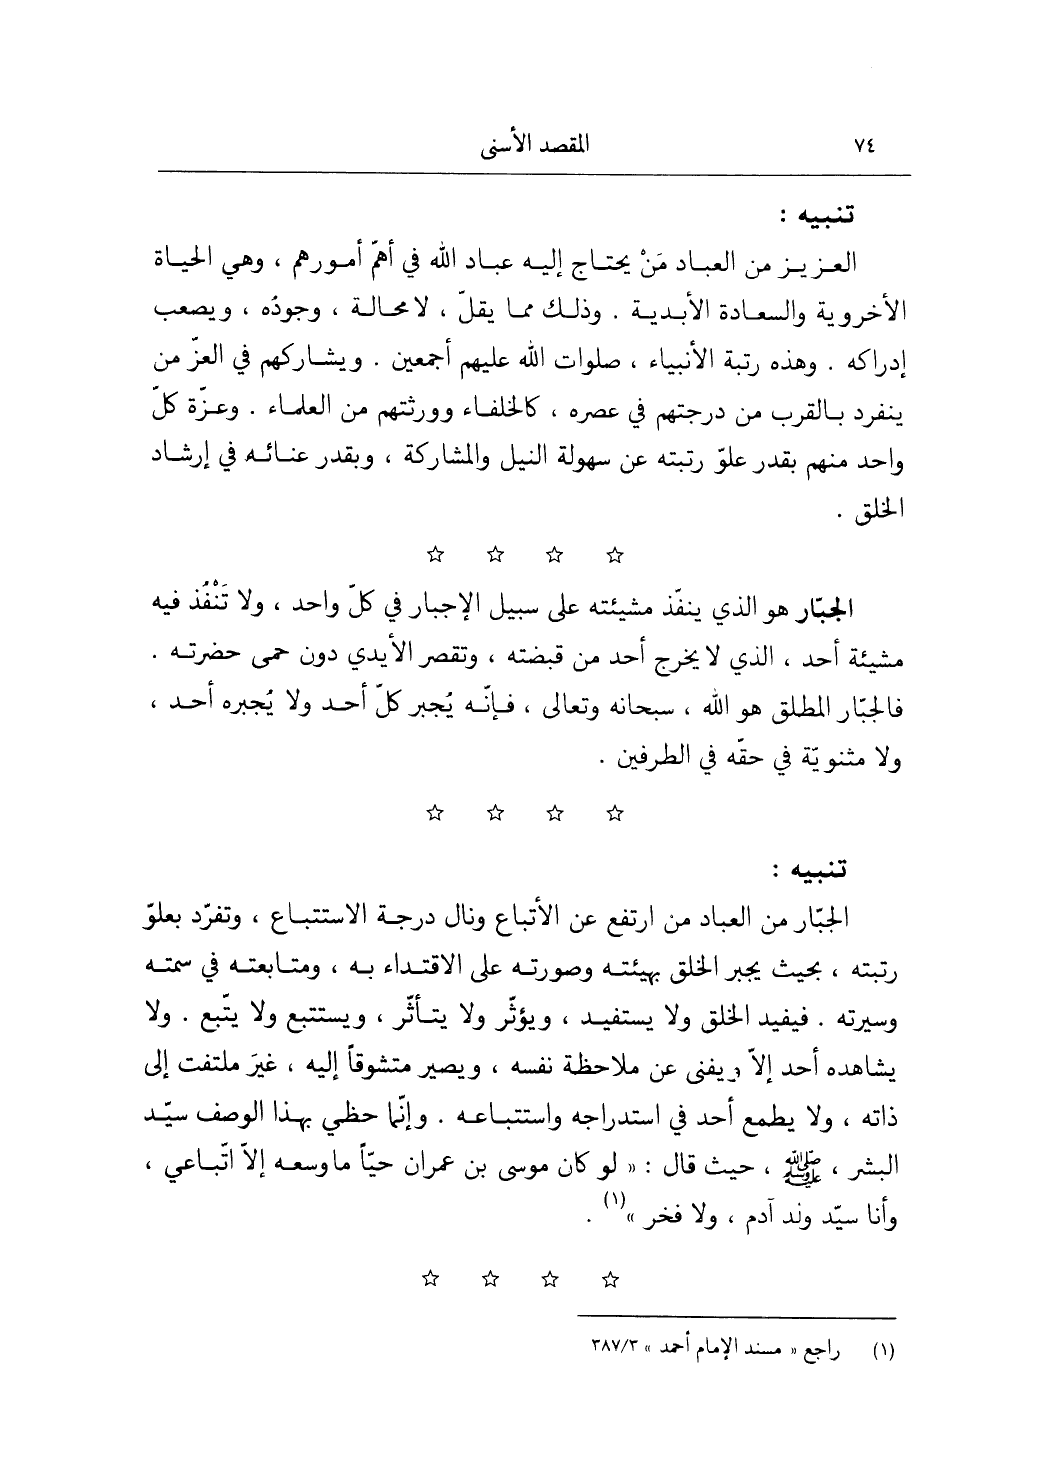 ٧٤ المقصد الأسنى
تنبيه :
العزيز من العباد مَنْ يحتاج إليه عباد الله في أهمّ أمورهم ، وهي الحياة
الأخروية والسعادة الأبدية . وذلك مما يقلّ ، لا محالة ، وجودُه ، ويصعب
إدراكه . وهذه رتبة الأنبياء ، صلوات الله عليهم أجمعين . ويشاركهم في العزّ من
ينفرد بالقرب من درجتهم في عصره ، كالخلفاء وورثتهم من العلماء . وعزّة كلّ
واحد منهم بقدر علوّ رتبته عن سهولة النيل والمشاركة ، وبقدر عنائه في إرشاد
الخلق .
☆ ☆ ☆ ☆
الجبّار هو الذي ينفّذ مشيئته على سبيل الإجبار في كلّ واحد ، ولا تَنْفُذ فيه
مشيئة أحد ، الذي لا يخرج أحد من قبضته ، وتقصر الأيدي دون حمى حضرته .
فالجبّار المطلق هو الله ، سبحانه وتعالى ، فإنّه يُجبر كلّ أحد ولا يُجبره أحد ،
ولا مثنويّة في حقّه في الطرفين .
☆ ☆ ☆ ☆
تنبيه :
الجبّار من العباد من ارتفع عن الأتباع ونال درجة الاستتباع ، وتفرّد بعلوّ
رتبته ، بحيث يجبر الخلق بهيئته وصورته على الاقتداء به ، ومتابعته في سمته
وسيرته . فيفيد الخلق ولا يستفيد ، ويؤثّر ولا يتأثّر ، ويستتبع ولا يتّبع . ولا
يشاهده أحد إلاّ ويفنى عن ملاحظة نفسه ، ويصير متشوقاً إليه ، غيرَ ملتفت إلى
ذاته ، ولا يطمع أحد في استدراجه واستتباعه . وإنّما حظي بهذا الوصف سيّد
البشر ، ﷺ ، حيث قال : « لو كان موسى بن عمران حيّاً ما وسعه إلاّ اتّباعي ،
وأنا سيّد ولد آدم ، ولا فخر »(١) .
☆ ☆ ☆ ☆
(١) راجع « مسند الإمام أحمد » ٣٨٧/٣